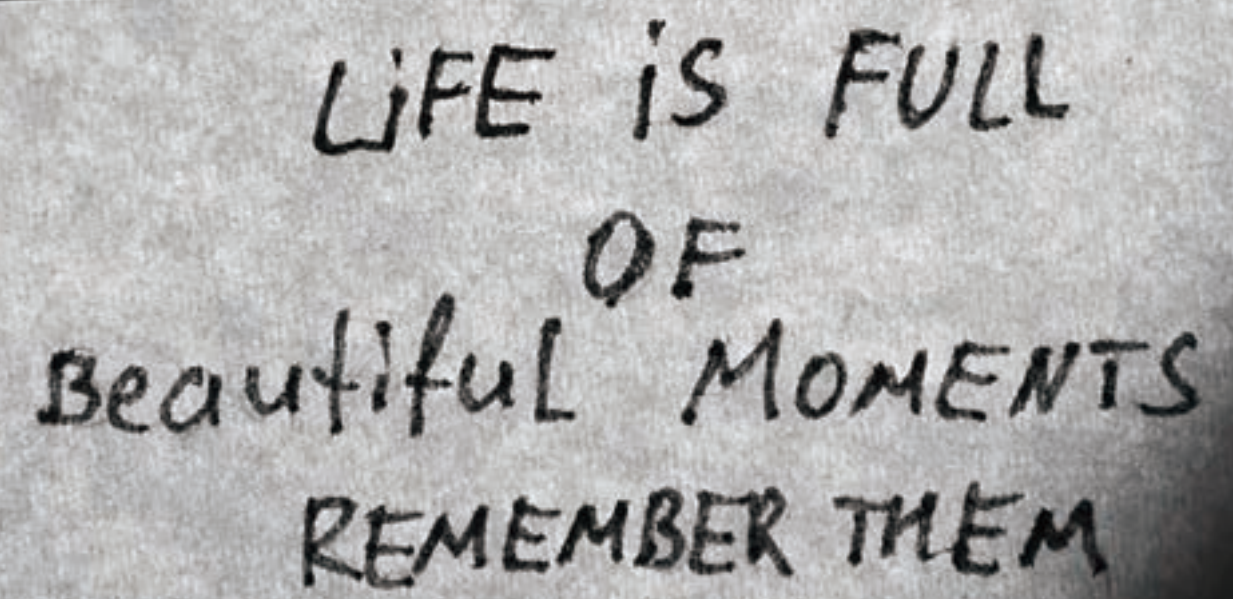 LiFE iS FULL
OF
Beautiful MOMENTS
REMEMBER THEM